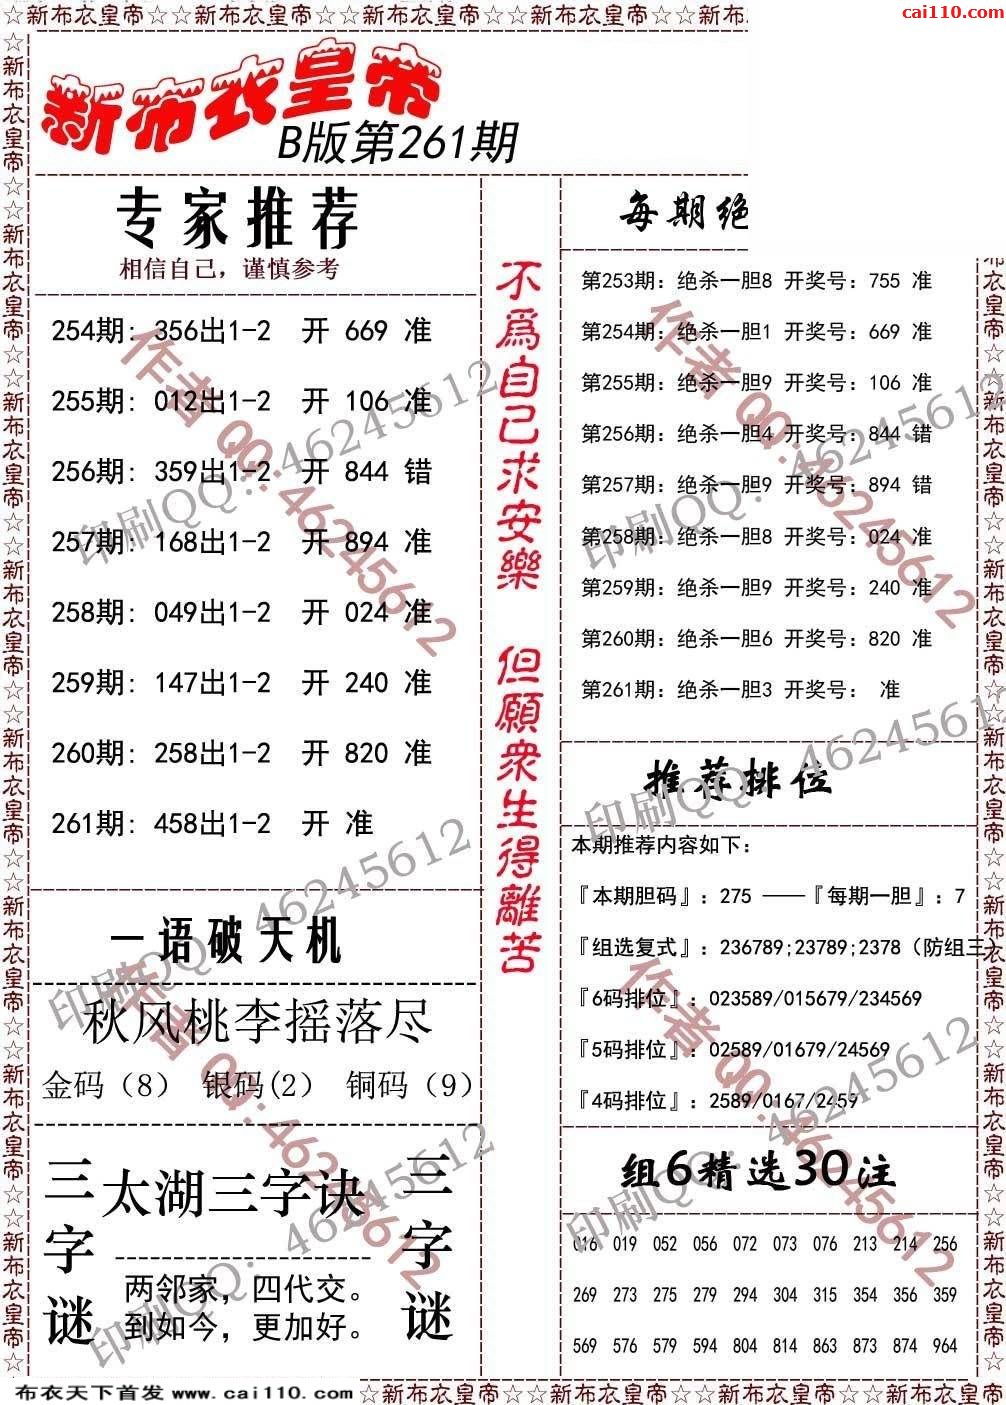 ☆新布衣皇帝☆☆新布衣皇帝☆☆新布衣皇帝☆☆新布衣皇帝☆☆新布
cai110.com
新布衣皇帝
B版第261期
专家推荐
相信自己，谨慎参考
254期: 356出1-2 开 669 准
255期: 012出1-2 开 106 准
256期: 359出1-2 开 844 错
257期: 168出1-2 开 894 准
258期: 049出1-2 开 024 准
259期: 147出1-2 开 240 准
260期: 258出1-2 开 820 准
261期: 458出1-2 开 准
一语破天机
秋风桃李摇落尽
金码（8） 银码(2） 铜码（9）
三字谜
太湖三字诀
两邻家，四代交。
到如今，更加好。
三字谜
不爲自己求安樂 但願衆生得離苦
每期绝
第253期: 绝杀一胆8 开奖号: 755 准
第254期: 绝杀一胆1 开奖号: 669 准
第255期: 绝杀一胆9 开奖号: 106 准
第256期: 绝杀一胆4 开奖号: 844 错
第257期: 绝杀一胆9 开奖号: 894 错
第258期: 绝杀一胆8 开奖号: 024 准
第259期: 绝杀一胆9 开奖号: 240 准
第260期: 绝杀一胆6 开奖号: 820 准
第261期: 绝杀一胆3 开奖号: 准
推荐排位
本期推荐内容如下:
『本期胆码』: 275 ——『每期一胆』: 7
『组选复式』: 236789;23789;2378（防组三）
『6码排位』: 023589/015679/234569
『5码排位』: 02589/01679/24569
『4码排位』: 2589/0167/2459
组6精选30注
016 019 052 056 072 073 076 213 214 256
269 273 275 279 294 304 315 354 356 359
569 576 579 594 804 814 863 873 874 964
作者 QQ:46245612
印刷QQ: 46245612
作者 QQ:46245612
印刷QQ: 46245612
印刷QQ: 46245612
印刷QQ: 46245612
作者 QQ:46245612
作者 QQ:46245612
印刷QQ: 46245612
印刷QQ: 46245612
☆新布衣皇帝☆☆新布衣皇帝☆☆新布衣皇帝☆☆新布衣皇帝☆☆新布衣皇帝☆☆新布衣皇帝☆☆新布衣皇帝☆☆新布衣皇帝☆
衣皇帝☆☆新布衣皇帝☆☆新布衣皇帝☆☆新布衣皇帝☆☆新布衣皇帝☆☆新布衣皇帝☆☆新布衣皇帝☆
布衣天下首发 www.cai110.com
☆新布衣皇帝☆☆新布衣皇帝☆☆新布衣皇帝☆☆新布衣皇帝☆